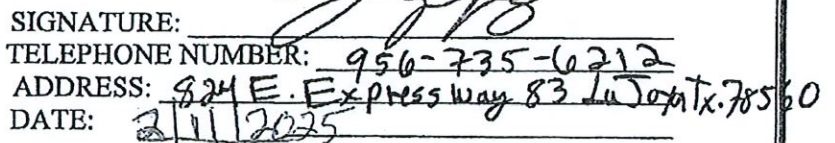 SIGNATURE:
TELEPHONE NUMBER: 956-735-6212
ADDRESS: 824 E. Expressway 83 La Joya Tx. 78560
DATE: 2/11/2025